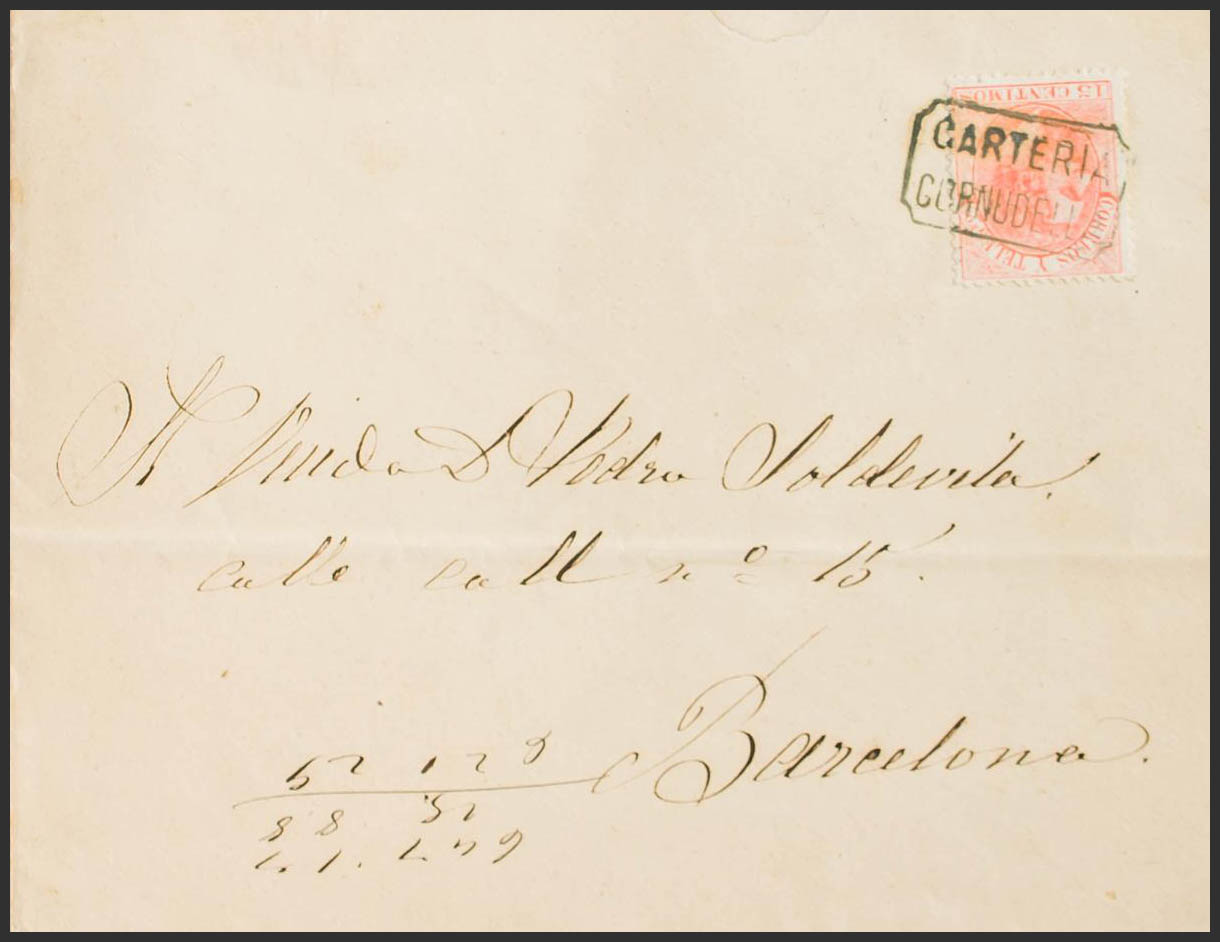 15 CENTIMOS
CORREOS Y TELEG
CARTERIA
CORNUDELL
A Viuda D Pedro Soldevila.
calle call nº 15.
Barcelona.